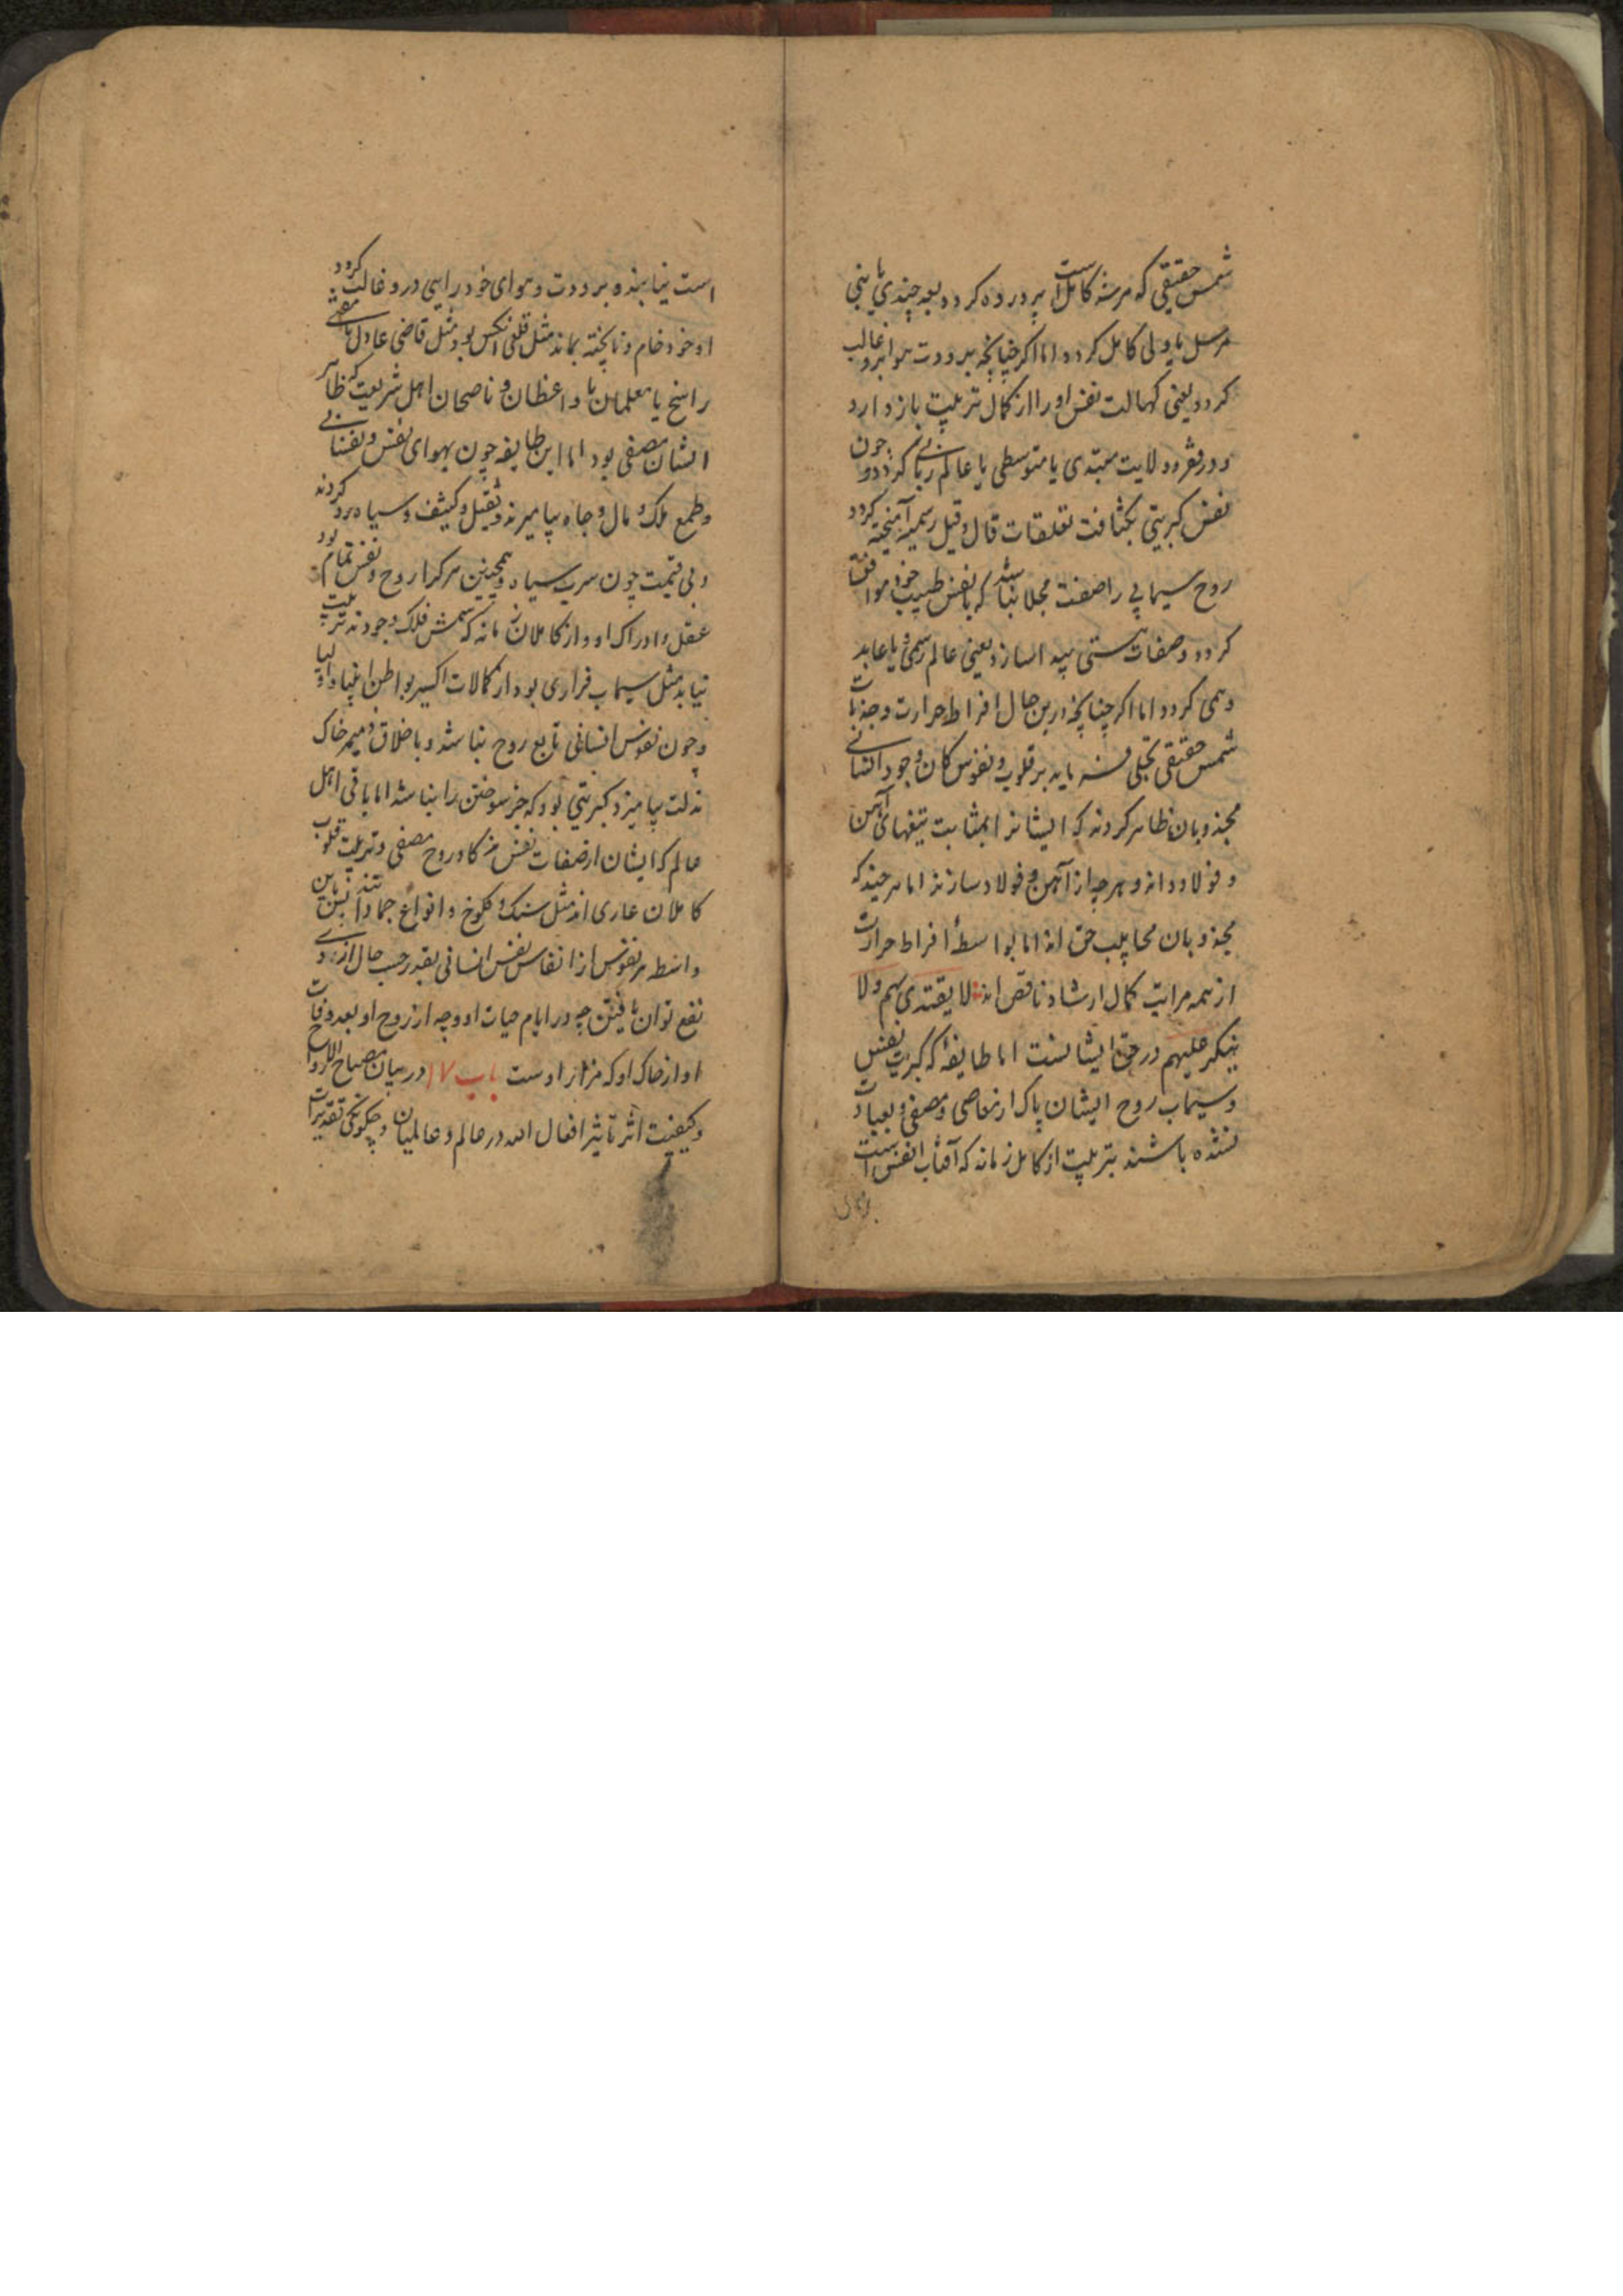 شمس حقیقی که مرشد کامل است پرورده کردد بعد چندی یا نبی
مرسل یا ولی کامل کردد اما اکر چنانچه برودت هوا برو غالب
کردد یعنی کهالت نفس او را از کمال تربیت باز دارد
و در فقر و ولایت مبتدی یا متوسطی یا عالم ربانی کردد و چون
نفس کبریتی بکثافت تعلقات قال و قیل رسمیه آمیخته کردد
روح سیمابی را صفت مجلا نباشد که با نفس طبیب خود موافق
کردد و صفات مستی پیدا سازد یعنی عالم رسمی و یا عابد
وهمی کردد اما اکر چنانچه درین حال افراط حرارت و جذبات
شمس حقیقی تجلی فرماید بر قلوب و نفوس کان وجود انسانی
مجذوبان ظاهر کردند که ایشانرا بمثابت تیغهای آهن
و فولاد دانه و هرچه از آهن و فولاد سازند اما هرچند که
مجذوبان مجانیب حق اند اما بواسطهٔ افراط حرارت
از همه مراتب کمال ارشاد ناقص اند لا یقتدی بهم ولا
ینکر علیهم در حق ایشانست اما طایفهٔ که کبریت نفس
و سیماب روح ایشان پاک از معاصی و مصفی و بعبادت
نشده باشند بتربیت از کامل زمانه که آفتاب انفس است
است نیابنده برودت و هوای خود رایی درو غالب کردد
او خود خام و ناپخته بماند مثل قلعی انکس بود مثل قاضی عادل یا مفتی
راسخ یا معلمان یا واعظان و ناصحان اهل شریعت که ظاهر
ایشان مصفی بود اما این طایفه چون بهوای نفس و نفسانی
و طمع ملک و مال و جاه بیامیزند ثقیل و کثیف و سیاه رو کردند
و بی قیمت چون سرب سیاه و همچنین هرکرا روح و نفس تمام بود
عقل و ادراک او و از کاملان زمانه که شمس فلک وجودند تربیت
نیابد مثل سیماب فراری بود از کمالات اکسیر بواطن انبیا و اولیا
و چون نفوس انسانی تابع روح نباشد و باخلاق ذمیمه خاک
مذلت بیامیزد کبریتی بود که جز سوختن را نباشد اما باقی اهل
عالم که ایشان از صفات نفس مزکا و روح مصفی و تربیت قلوب
کاملان عاری اند مثل سنک و کلوخ و انواع جمادا تند باین
واسطه هر نفوس از انفاس نفس انسانی بقدر حسب حال از وی
نفع توان یافتن چه در ایام حیات او و چه از روح او بعد وفات
او از خاک او که مزار اوست باب ۱۷ در بیان مصباح الارواح
و کیفیت اثر تاثیر افعال الله در عالم و عالمیان و چکونکی تقدیرات